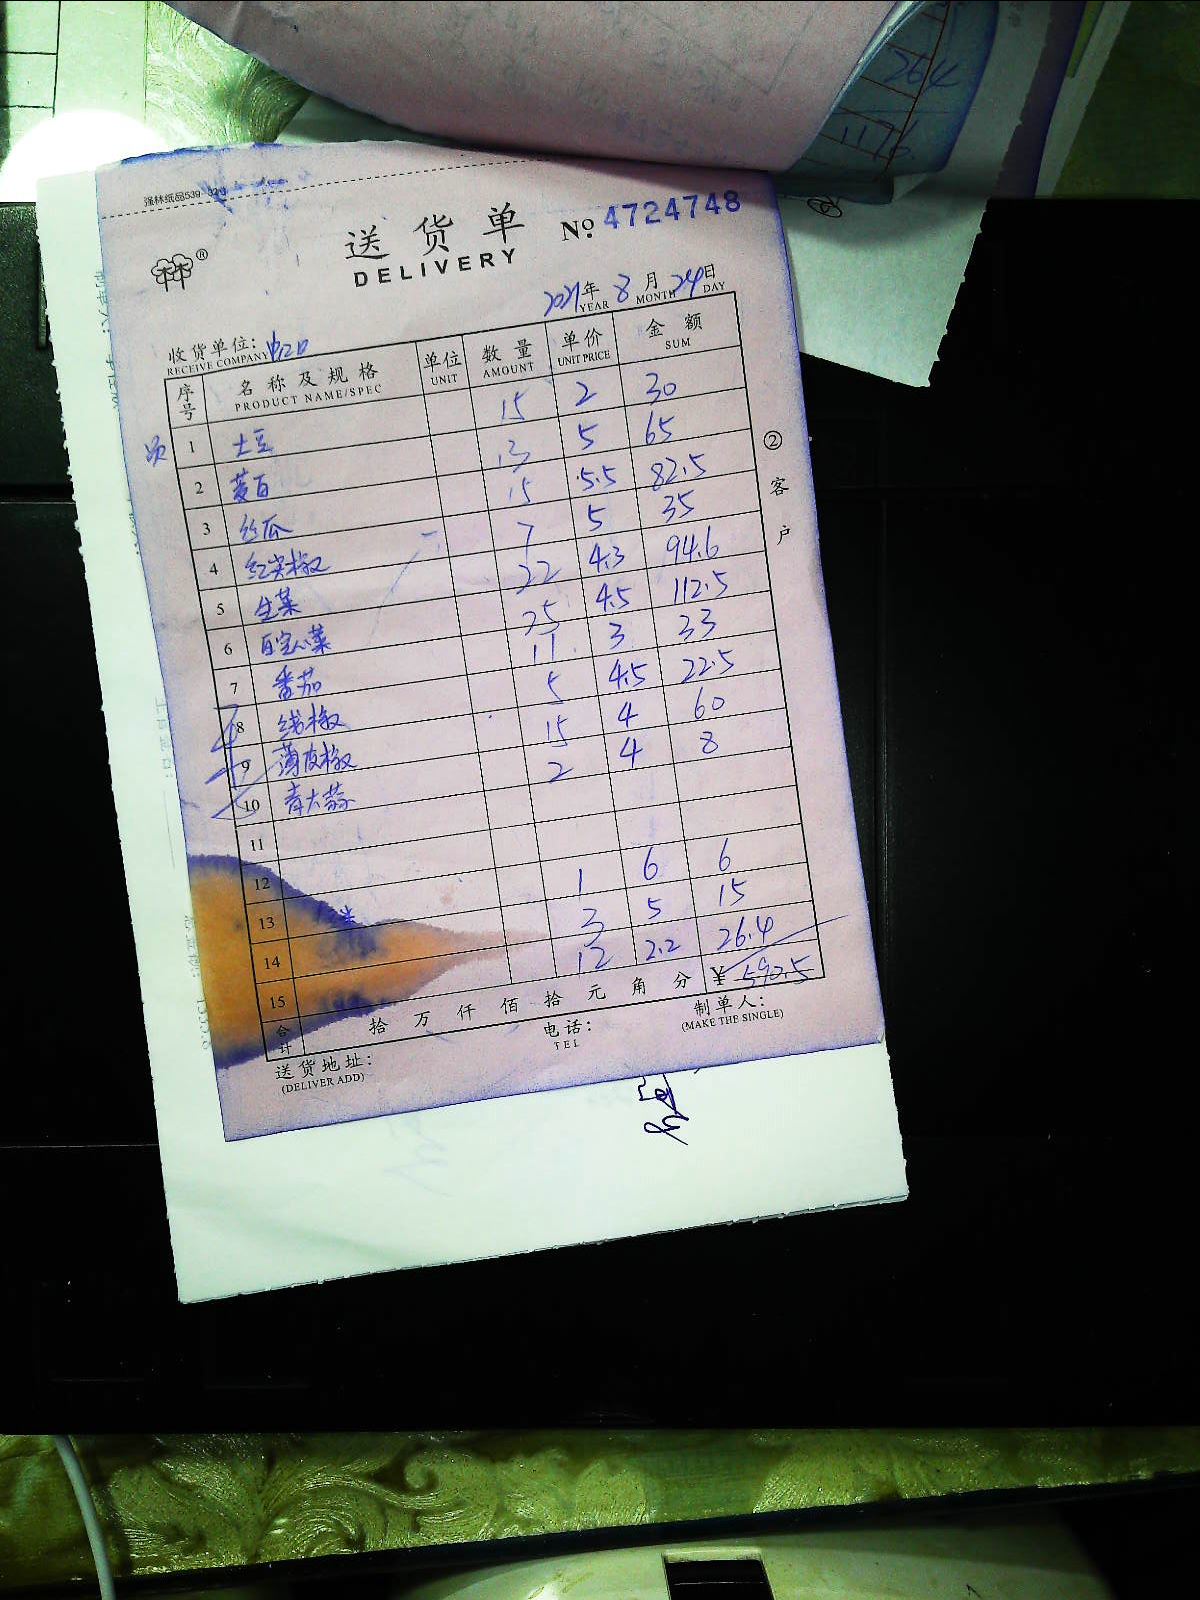 264
1176
强林纸品539
送货单 No. 4724748
DELIVERY
2021年 8月 24日
YEAR MONTH DAY
收货单位:
RECEIVE COMPANY
序号 名称及规格 单位 数量 单价 金额
PRODUCT NAME/SPEC UNIT AMOUNT UNIT PRICE SUM
1 土豆 15 2 30
2 茭白 13 5 65
3 丝瓜 15 5.5 82.5
4 红尖椒 7 5 35
5 生菜 22 4.3 94.6
6 25 4.5 112.5
7 番茄 11 3 33
8 线椒 5 4.5 22.5
9 薄皮椒 15 4 60
10 青大蒜 2 4 8
11
12
13 1 6 6
14 3 5 15
15 12 2.2 26.4
合计 拾万仟佰拾元角分 ¥ 590.5
送货地址: 电话: 制单人:
(DELIVER ADD) TEL (MAKE THE SINGLE)
② 客户